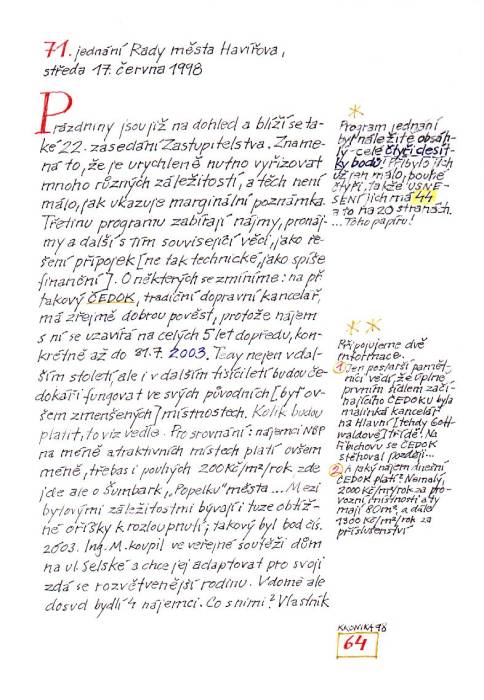 71. jednání Rady města Havířova,
středa 17. června 1998
Prázdniny jsou již na dohled a blíží se ta-
ké 22. zasedání Zastupitelstva. Zname-
ná to, že je urychleně nutno vyřizovat
mnoho různých záležitostí, a těch není
málo, jak ukazuje marginální poznámka.
Třetinu programu zabírají nájmy, pronáj-
my a další s tím související věci, jako ře-
šení přípojek [ne tak technické, jako spíše
finanční]. O některých se zmíníme: na př.
takový ČEDOK, tradiční dopravní kancelář,
má zřejmě dobrou pověst, protože nájem
s ní se uzavírá na celých 5 let dopředu, kon-
krétně až do 31.7. 2003. Tedy nejen v dal-
ším století, ale i v dalším tisíciletí budou če-
dokáři fungovat ve svých původních [byť ov-
šem zmenšených] místnostech. Kolik budou
platit, to viz vedle. Pro srovnání: nájemci NBP
na méně atraktivních místech platí ovšem
méně, třebas i pouhých 200 Kč/m²/rok zde
jde ale o Šumbark, „Popelku" města... Mezi
bytovými záležitostmi bývají tuze obtíž-
né oříšky k rozlousknutí; takový byl bod čís.
2603. Ing. M. koupil ve veřejné soutěži dům
na ul. Selské a chce jej adaptovat pro svoji
zdá se rozvětvenější rodinu. V domě ale
dosud bydlí 4 nájemci. Co s nimi? Vlastník
*
Program jednání
byl náležitě obsáh-
lý - celé čtyři desít-
ky bodů! Přibylo jich
už jen málo, pouhé
čtyři, takže USNE-
SENÍ jich má 44
a to na 20 stranách.
... Toho papíru!
* *
Připojujeme dvě
informace.
1 Jen postarší pamět-
níci vědí, že úplně
prvním sídlem začí-
najícího ČEDOKU byla
malinká kancelář
na Hlavní [tehdy Gott-
waldově] třídě. Na
se ČEDOK
stěhoval později...
2 A jaký nájem dnešní
ČEDOK platí? Nemalý,
2000 Kč/m²/rok za pro-
vozní místnosti a ty
mají 80 m², a dále
1300 Kč/m²/rok za
příslušenství
KRONIKA 98
64